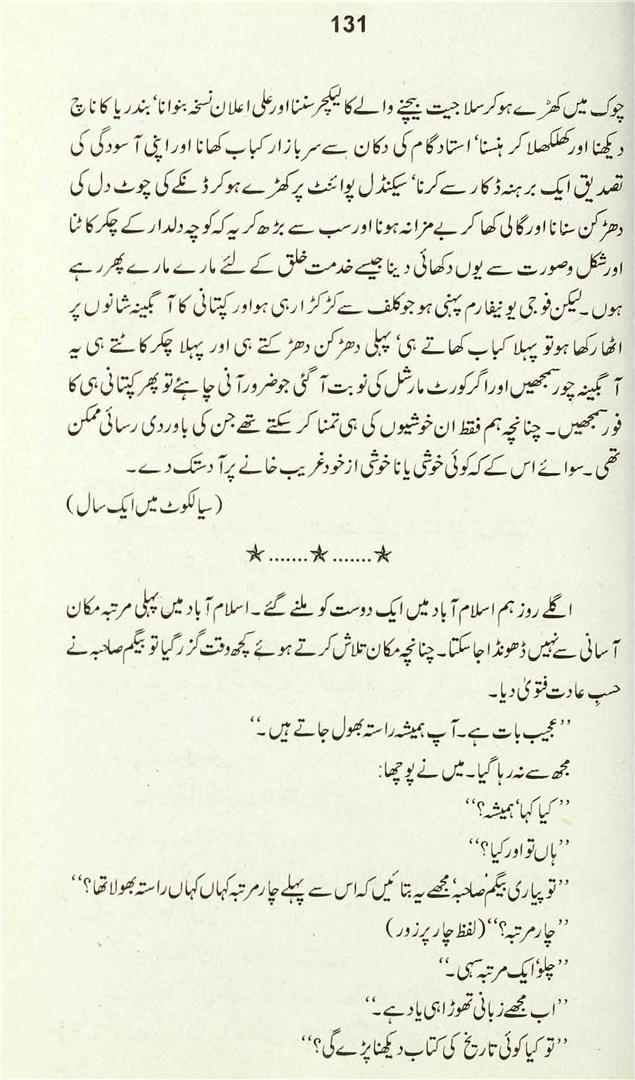 131
چوک میں کھڑے ہو کر سلاجیت بیچنے والے کا لیکچر سننا اور علی اعلان نسخہ بنوانا، بندریا کا ناچ
دیکھنا اور کھلکھلا کر ہنسنا، استاد گام کی دکان سے سر بازار کباب کھانا اور اپنی آسودگی کی
تصدیق ایک برہنہ ڈکار سے کرنا، سیکنڈل پوائنٹ پر کھڑے ہو کر ڈنکے کی چوٹ دل کی
دھڑکن سنانا اور گالی کھا کر بے مزا نہ ہونا اور سب سے بڑھ کر یہ کہ کوچہ دلدار کے چکر کاٹنا
اور شکل و صورت سے یوں دکھائی دینا جیسے خدمت خلق کے لئے مارے مارے پھر رہے
ہوں۔ لیکن فوجی یونیفارم پہنی ہو جو کلف سے کڑکڑا رہی ہو اور کپتانی کا آبگینہ شانوں پر
اٹھا رکھا ہو تو پہلا کباب کھاتے ہی، پہلی دھڑکن دھڑکتے ہی اور پہلا چکر کاٹتے ہی یہ
آبگینہ چور سمجھیں اور اگر کورٹ مارشل کی نوبت آ گئی جو ضرور آنی چاہئے تو پھر کپتانی ہی کا
فور سمجھیں۔ چنانچہ ہم فقط ان خوشیوں کی ہی تمنا کر سکتے تھے جن کی باوردی رسائی ممکن
تھی۔ سوائے اس کے کہ کوئی خوشی یا ناخوشی از خود غریب خانے پر آ دستک دے۔
(سیالکوٹ میں ایک سال)
★.......★.......★
اگلے روز ہم اسلام آباد میں ایک دوست کو ملنے گئے۔ اسلام آباد میں پہلی مرتبہ مکان
آسانی سے نہیں ڈھونڈا جا سکتا۔ چنانچہ مکان تلاش کرتے ہوئے کچھ وقت گزر گیا تو بیگم صاحبہ نے
حسبِ عادت فتویٰ دیا۔
’’عجیب بات ہے۔ آپ ہمیشہ راستہ بھول جاتے ہیں۔‘‘
مجھ سے نہ رہا گیا۔ میں نے پوچھا:
’’کیا کہا، ہمیشہ؟‘‘
’’ہاں تو اور کیا؟‘‘
’’تو پیاری بیگم صاحبہ، مجھے یہ بتائیں کہ اس سے پہلے چار مرتبہ کہاں کہاں راستہ بھولا تھا؟‘‘
’’چار مرتبہ؟‘‘ (لفظ چار پر زور)
’’چلو، ایک مرتبہ سہی۔‘‘
’’اب مجھے زبانی تھوڑا ہی یاد ہے۔‘‘
’’تو کیا کوئی تاریخ کی کتاب دیکھنا پڑے گی؟‘‘